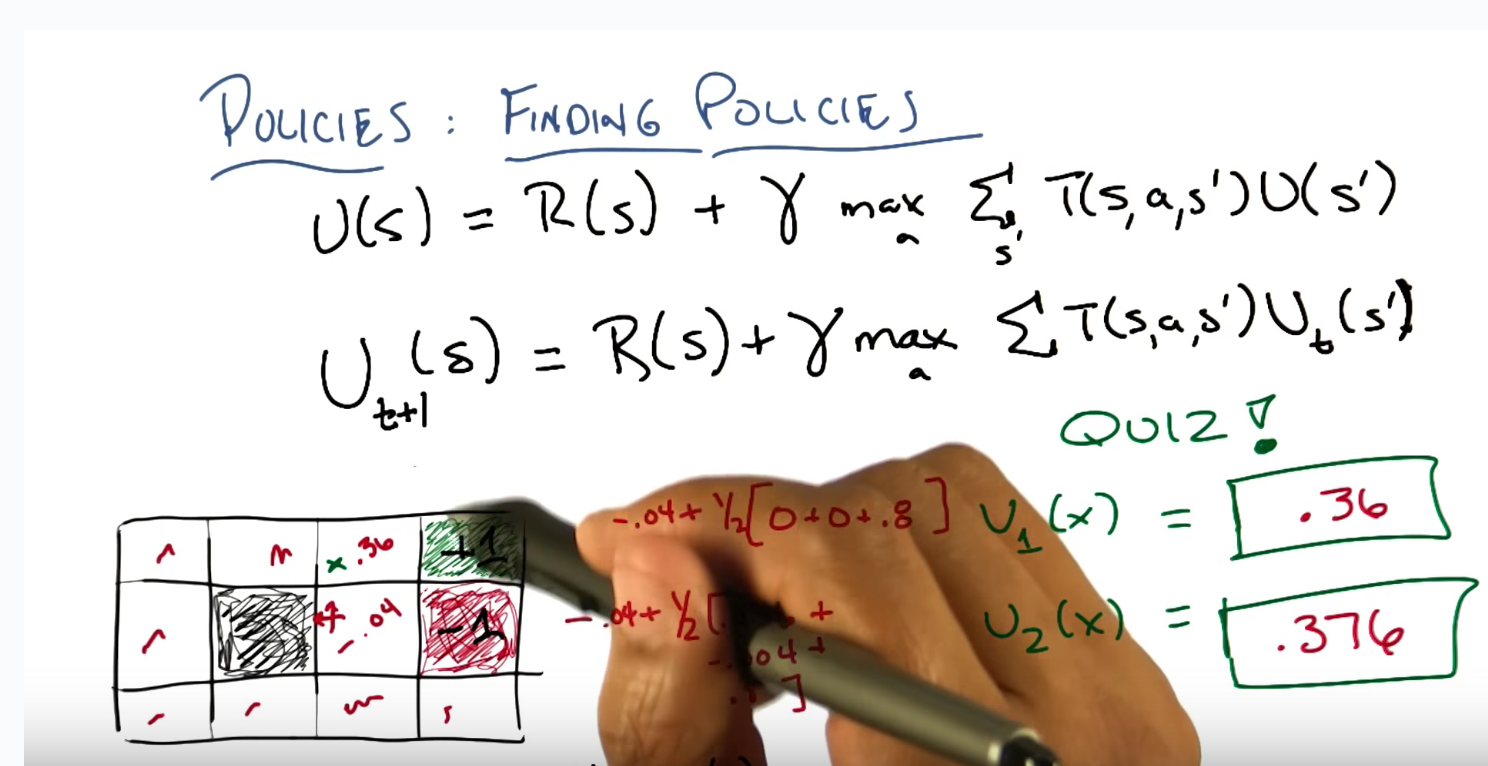 POLICIES: FINDING POLICIES
U(s) = R(s) + γ max_a Σ_s' T(s,a,s')U(s')
U_t+1(s) = R(s) + γ max_a Σ T(s,a,s')U_t(s')
QUIZ!
-.04+ 1/2[0+0+.8] U_1(x) = .36
x .36 +1
-.04+ 1/2[ +
-.04 -1
-.04+
U_2(x) = .376
]